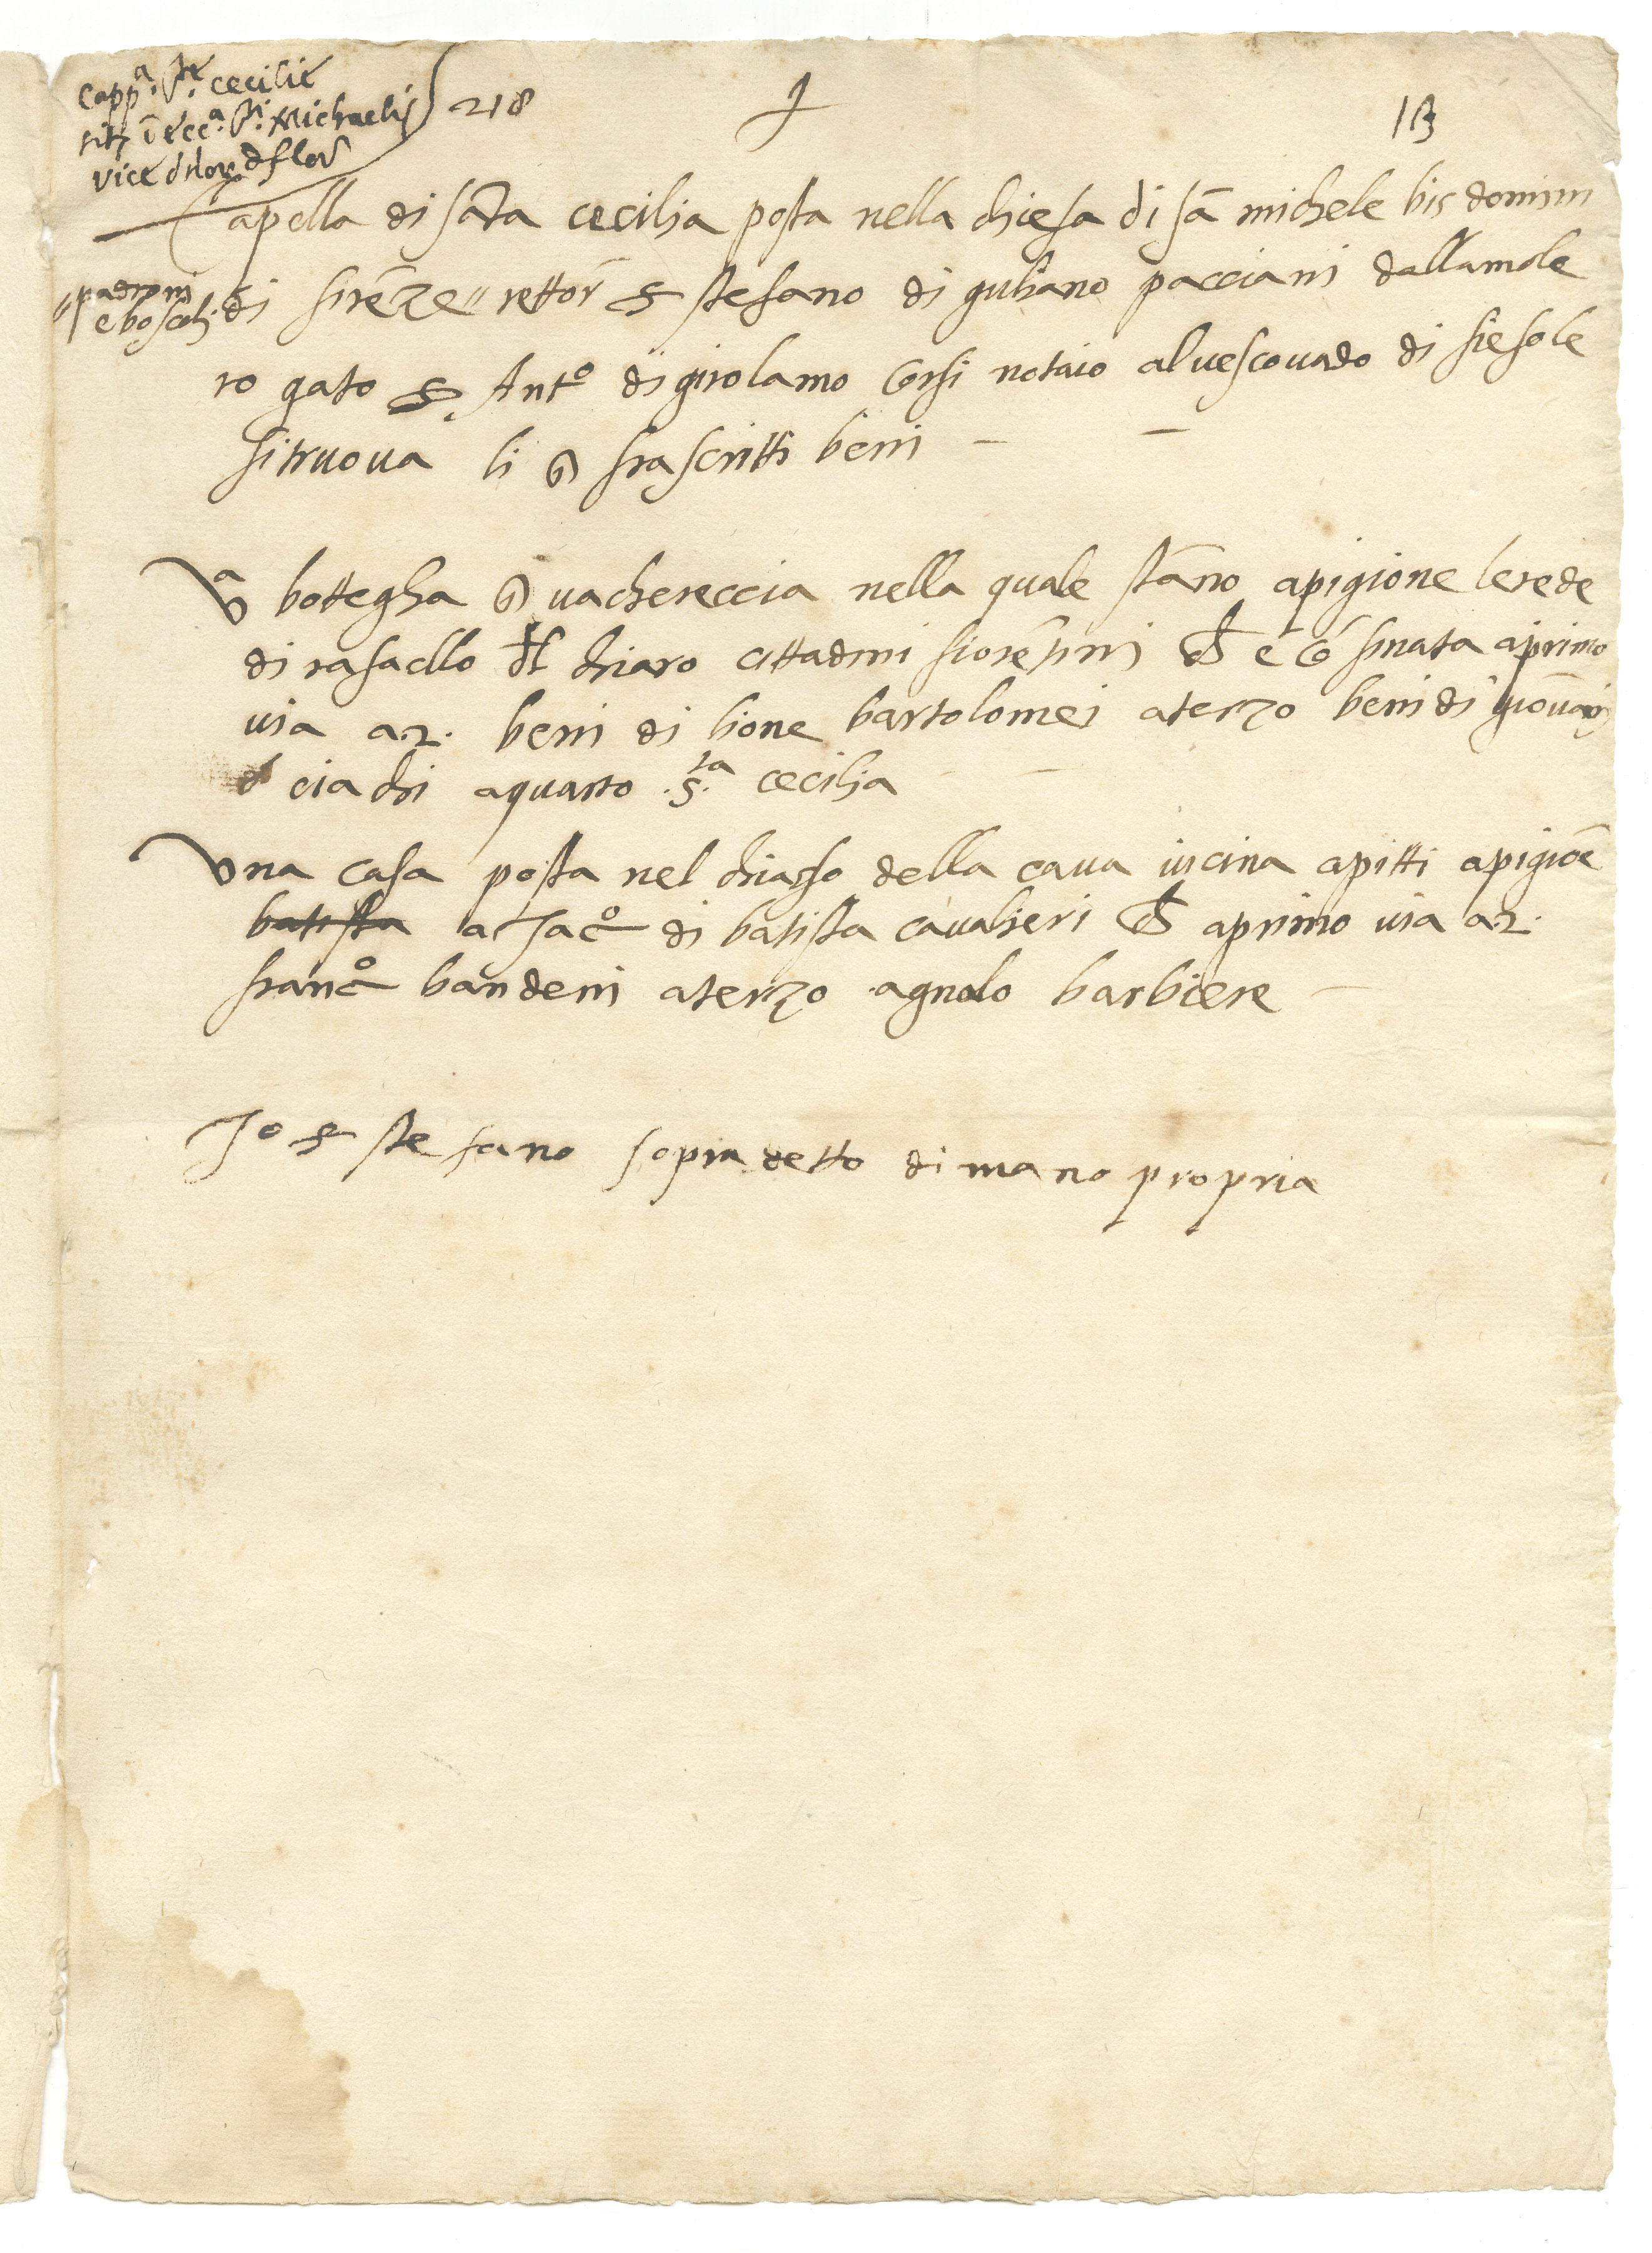 Capp.ª S.te cecilie
sitę ĩ ecc.ª S.ti Michaelis 218
vice dñor d flor
13
Capella di sãta cecilia posta nella chiesa di sã michele bisdomini
padroni
e boscoli
di firẽze rettor̃ s stefano di guliano pacciani dallamole
ro gato s Ant.º di girolamo corsi notaio aluescouado di fiesole
si truoua li ĩ frascritti beni
Vª bottegha ĩ uachereccia nella quale stãno apigione lerede
di rafaello dl chiaro cittadini fiorẽtini & e cõ finata aprimo
uia a 2. beni di lione bartolomei a terzo beni di giouãni
ciachi aquarto .s.ta cecilia
Vna casa posta nel chiasso della caua uicina apitti apigiõe
batista a Jac.º di batista caualieri & aprimo uia a 2.
franc.º bandeni aterzo agnolo barbiere
Jo s stefano sopra detto di mano propria